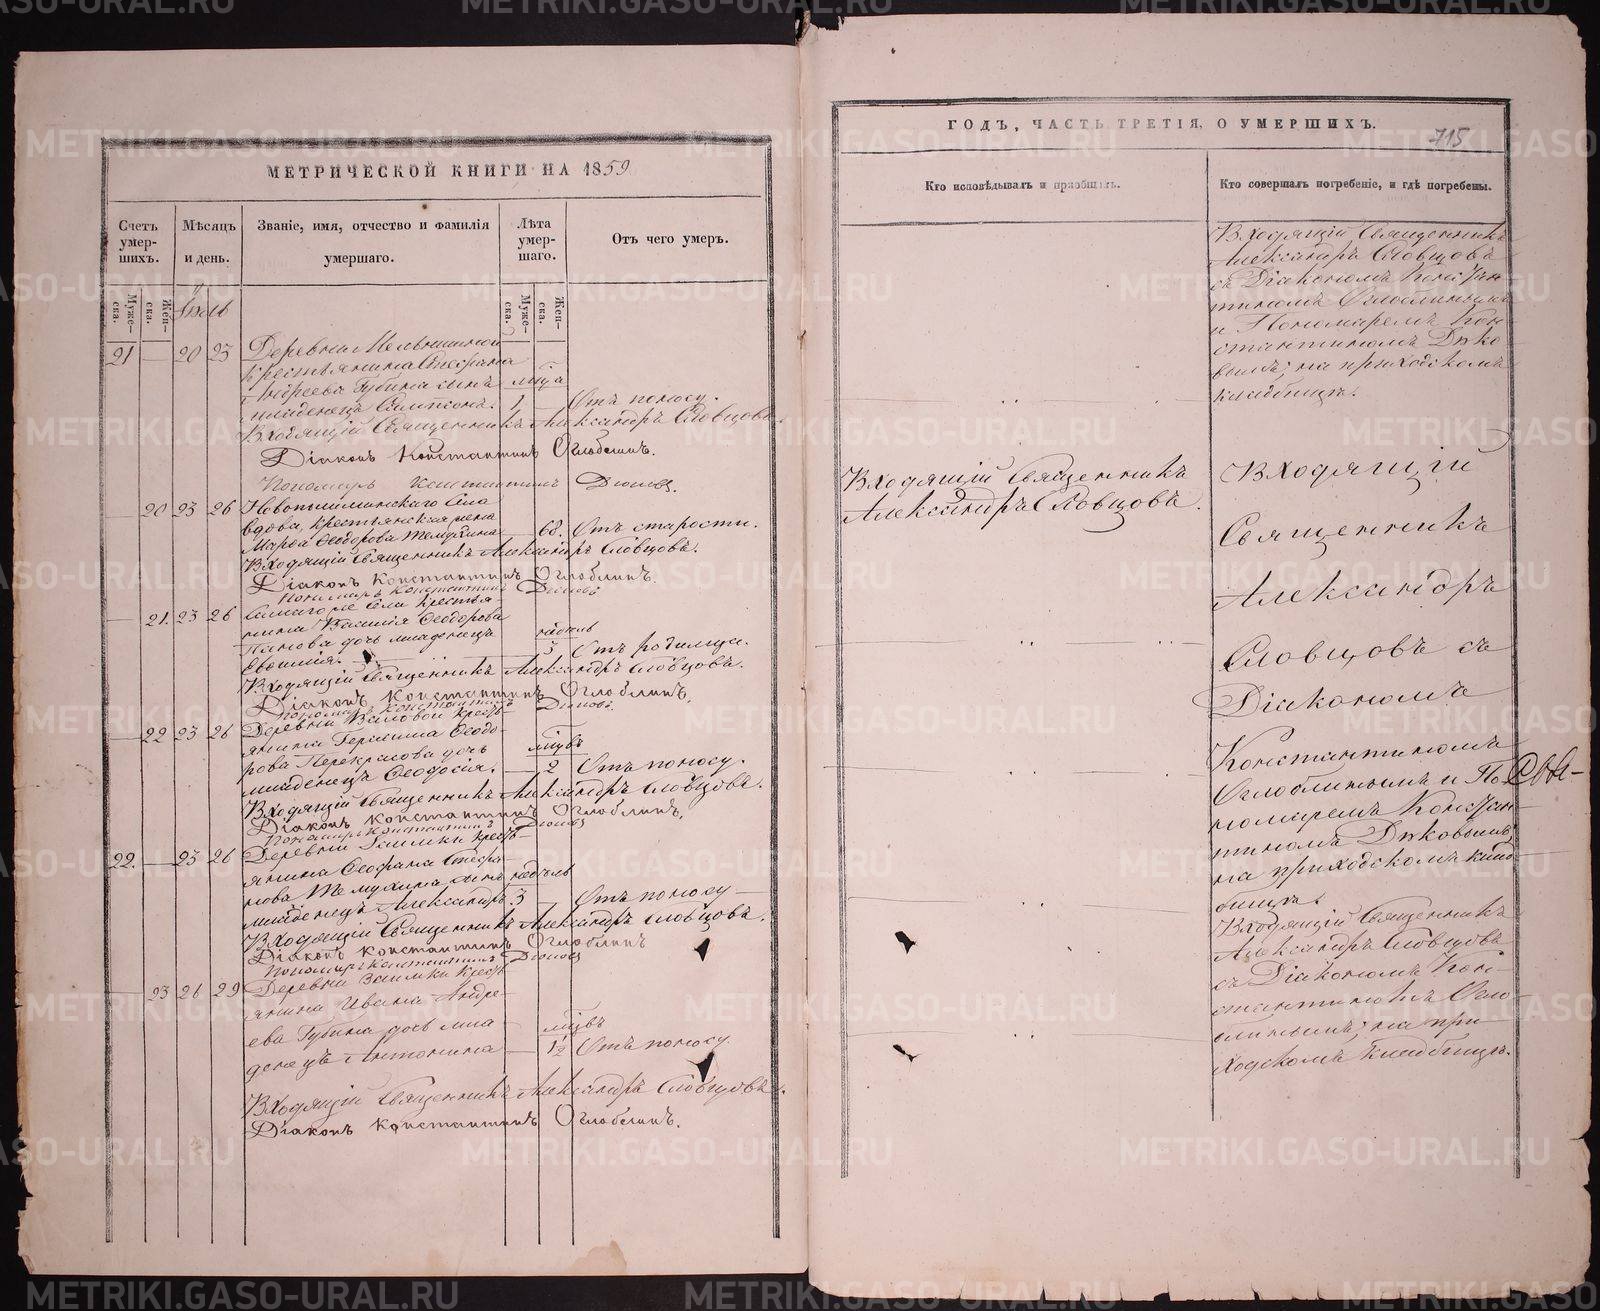 МЕТРИЧЕСКОЙ КНИГИ НА 1859
Счетъ умер-шихъ.
Мѣсяцъ и день.
Званіе, имя, отчество и фамилія умершаго.
Лѣта умер-шаго.
Отъ чего умеръ.
Муже-ска.
Жен-ска.
Муже-ска.
Жен-ска.
21 — 20 23 Деревни Мельничной
крестьянина Стефана
Андреева Губина сынъ
младенецъ Сампсонъ. 1 — Отъ поносу.
Входящій Священникъ Александръ Словцовъ.
Діаконъ Константинъ Оглоблинъ.
Пономарь Константинъ
— 20 23 26 Новопышминскаго Села
вдова, крестьянская жена
Марѳа Ѳеодорова — 68. Отъ старости.
Входящій Священникъ Александръ Словцовъ.
Діаконъ Константинъ Оглоблинъ.
Пономарь Константинъ
— 21. 23 26 Села крестья-
нина Василія Ѳеодорова
Панова дочь младенецъ недѣль
3 Отъ родимца.
Входящій Священникъ Александръ Словцовъ.
Діаконъ Константинъ Оглоблинъ.
Пономарь Константинъ
— 22 23 26 Деревни кресть-
янина Герасима Ѳеодо-
рова Некрасова дочь
младенецъ Ѳеодосія. — 2 Отъ поносу.
Входящій Священникъ Александръ Словцовъ.
Діаконъ Константинъ Оглоблинъ.
Пономарь Константинъ
22. — 23 26 Деревни Заимки кресть-
янина Стефа-
нова недѣль
младенецъ Александръ. 3 — Отъ поносу
Входящій Священникъ Александръ Словцовъ.
Діаконъ Константинъ Оглоблинъ
Пономарь Константинъ
— 23 26 29 Деревни Заимки кресть-
янина Ивана Андре-
ева Губина дочь мла-
денецъ Антонина — 1½ Отъ поносу
Входящій Священникъ Александръ Словцовъ.
Діаконъ Константинъ Оглоблинъ.
ГОДЪ, ЧАСТЬ ТРЕТІЯ, О УМЕРШИХЪ.
715
Кто исповѣдывалъ и пріобщалъ.
Кто совершалъ погребеніе, и гдѣ погребены.
Входящій Священникъ
Александръ Словцовъ
съ Діакономъ Констан-
тиномъ Оглоблинымъ
и Пономаремъ Кон-
стантиномъ
на приходскомъ
кладбищѣ.
Входящій Священникъ
Александръ Словцовъ.
Входящій
Священникъ
Александръ
Словцовъ съ
Діакономъ
Константиномъ
Оглоблинымъ и По-
номаремъ Констан-
тиномъ
на приходскомъ клад-
бищѣ.
Входящій Священникъ
Александръ Словцовъ
съ Діакономъ Кон-
стантиномъ Огло-
блинымъ, на при-
ходскомъ кладбищѣ.
METRIKI.GASO-URAL.RU